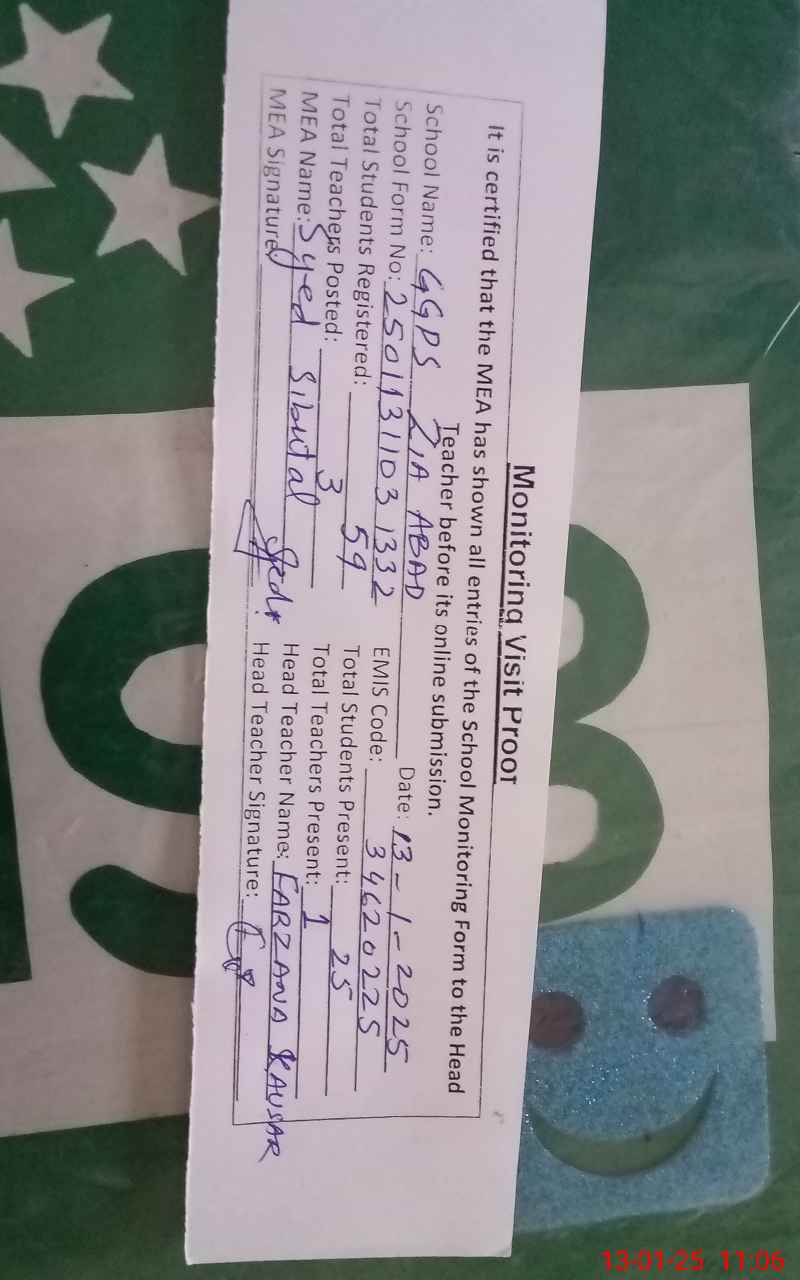 Monitoring Visit Proof
It is certified that the MEA has shown all entries of the School Monitoring Form to the Head
Teacher before its online submission.
School Name: GGPS ZIA ABAD Date: 13-1-2025
School Form No: 2501131103 1332 EMIS Code: 34620225
Total Students Registered: 59 Total Students Present: 25
Total Teachers Posted: 3 Total Teachers Present: 1
MEA Name: Syed Head Teacher Name: FARZANA KAUSAR
MEA Signature: Head Teacher Signature:
13-01-25 11:06